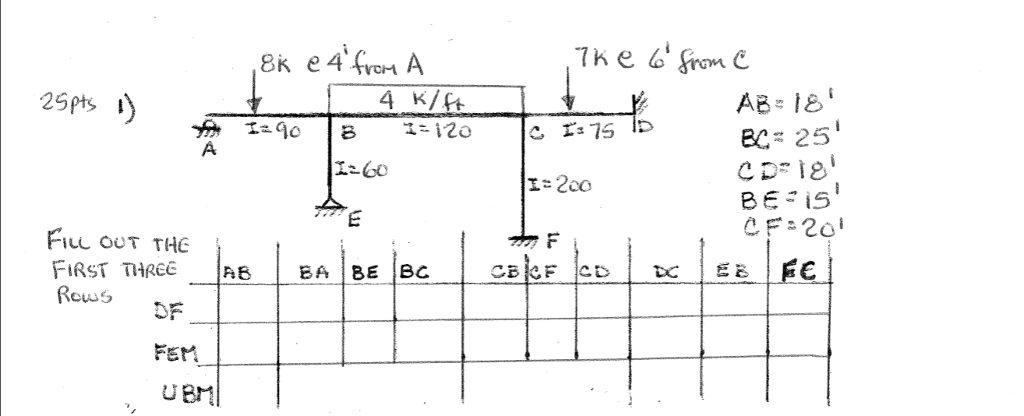 8K @ 4' from A
7K @ 6' from C
25pts 1)
4 K/ft
AB = 18'
I=90 B I=120 C I=75 D
A
BC = 25'
I=60
CD = 18'
I=200
BE = 15'
E
CF = 20'
F
FILL OUT THE
FIRST THREE
ROWS
AB BA BE BC CB CF CD DC EB FC
DF
FEM
UBM